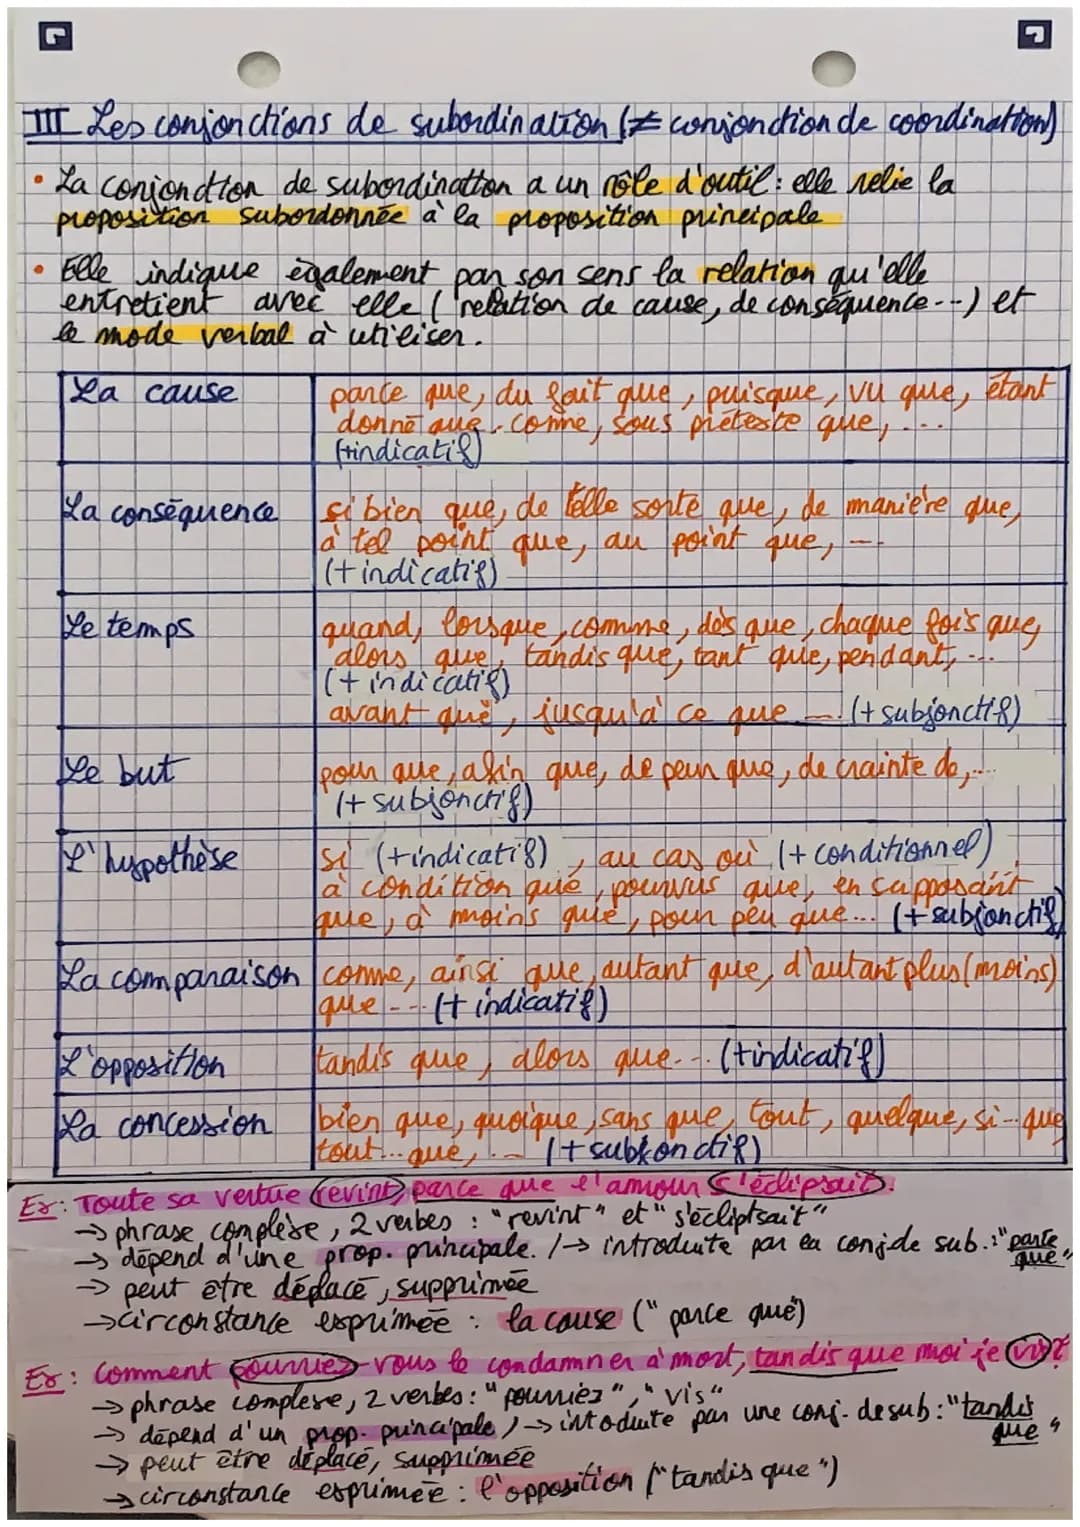 III Les conjonctions de subordination (≠ conjonction de coordination)
• La conjonction de subordination a un rôle d'outil : elle relie la
proposition subordonnée à la proposition principale
• Elle indique également par son sens la relation qu'elle
entretient avec elle ( relation de cause, de conséquence...) et
le mode verbal à utiliser.
La cause
parce que, du fait que, puisque, vu que, étant
donné que, comme, sous prétexte que, ...
(+indicatif)
La conséquence
si bien que, de telle sorte que, de manière que,
à tel point que, au point que, ...
(+ indicatif)
Le temps
quand, lorsque, comme, dès que, chaque fois que,
alors que, tandis que, tant que, pendant, ...
(+ indicatif)
avant que, jusqu'à ce que ... (+ subjonctif)
Le but
pour que, afin que, de peur que, de crainte de, ...
(+ subjonctif)
L'hypothèse
si (+indicatif), au cas où (+ conditionnel)
à condition que, pourvus que, en supposant
que, à moins que, pour peu que... (+ subjonctif)
La comparaison
comme, ainsi que, autant que, d'autant plus (moins)
que ... (+ indicatif)
L'opposition
tandis que, alors que... (+indicatif)
La concession
bien que, quoique, sans que, tout, quelque, si...que
tout...que, ... (+ subkonctif)
Ex: Toute sa vertue revint, parce que l'amour s'éclipsait.
→ phrase complexe, 2 verbes : "revint" et "s'écliptsait"
→ dépend d'une prop. principale. / → introduite par la conj. de sub. : "parce
que"
→ peut être déplacé, supprimée
→ circonstance exprimée : la cause ("parce que")
Ex : Comment pourriez-vous le condamner à mort, tandis que moi je vis ?
→ phrase complexe, 2 verbes : "pourriez", "vis"
→ dépend d'un prop. principale / → intoduite par une conj. de sub : "tandis
que"
→ peut être déplacé, supprimée
→ circonstance exprimée : l'opposition ("tandis que")